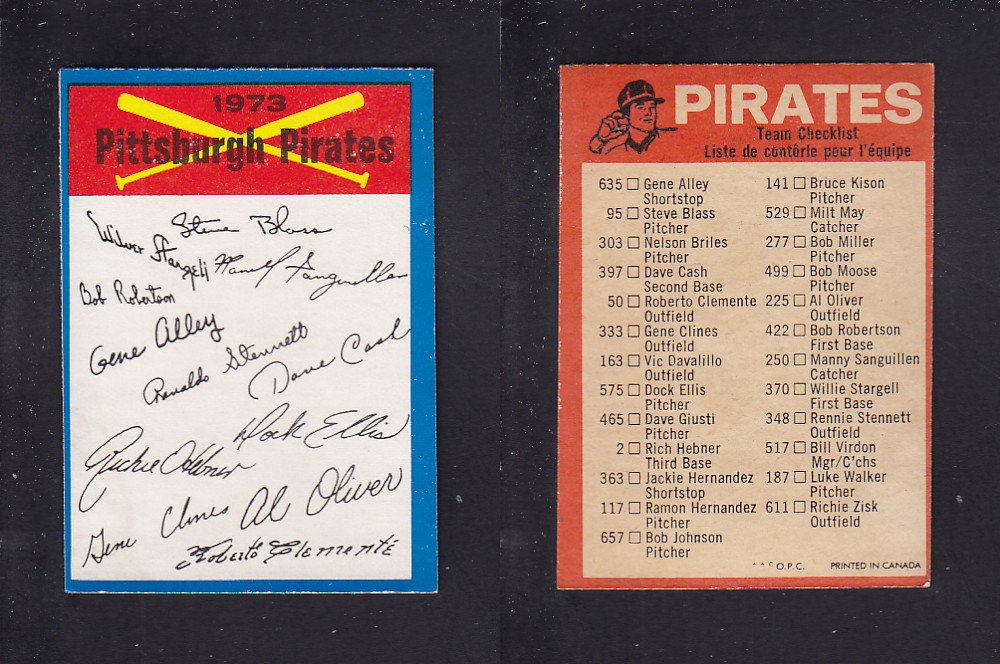 1973
Pittsburgh Pirates
Steve Blass
Wilver Stargell
Manuel Sanguillen
Bob Robertson
Gene Alley
Renaldo Stennett
Dave Cash
Dock Ellis
Richie Hebner
Al Oliver
Gene Clines
Roberto Clemente
PIRATES
Team Checklist
Liste de contôrle pour l'équipe
635 Gene Alley
Shortstop
95 Steve Blass
Pitcher
303 Nelson Briles
Pitcher
397 Dave Cash
Second Base
50 Roberto Clemente
Outfield
333 Gene Clines
Outfield
163 Vic Davalillo
Outfield
575 Dock Ellis
Pitcher
465 Dave Giusti
Pitcher
2 Rich Hebner
Third Base
363 Jackie Hernandez
Shortstop
117 Ramon Hernandez
Pitcher
657 Bob Johnson
Pitcher
141 Bruce Kison
Pitcher
529 Milt May
Catcher
277 Bob Miller
Pitcher
499 Bob Moose
Pitcher
225 Al Oliver
Outfield
422 Bob Robertson
First Base
250 Manny Sanguillen
Catcher
370 Willie Stargell
First Base
348 Rennie Stennett
Outfield
517 Bill Virdon
Mgr/C'chs
187 Luke Walker
Pitcher
611 Richie Zisk
Outfield
O.P.C. PRINTED IN CANADA